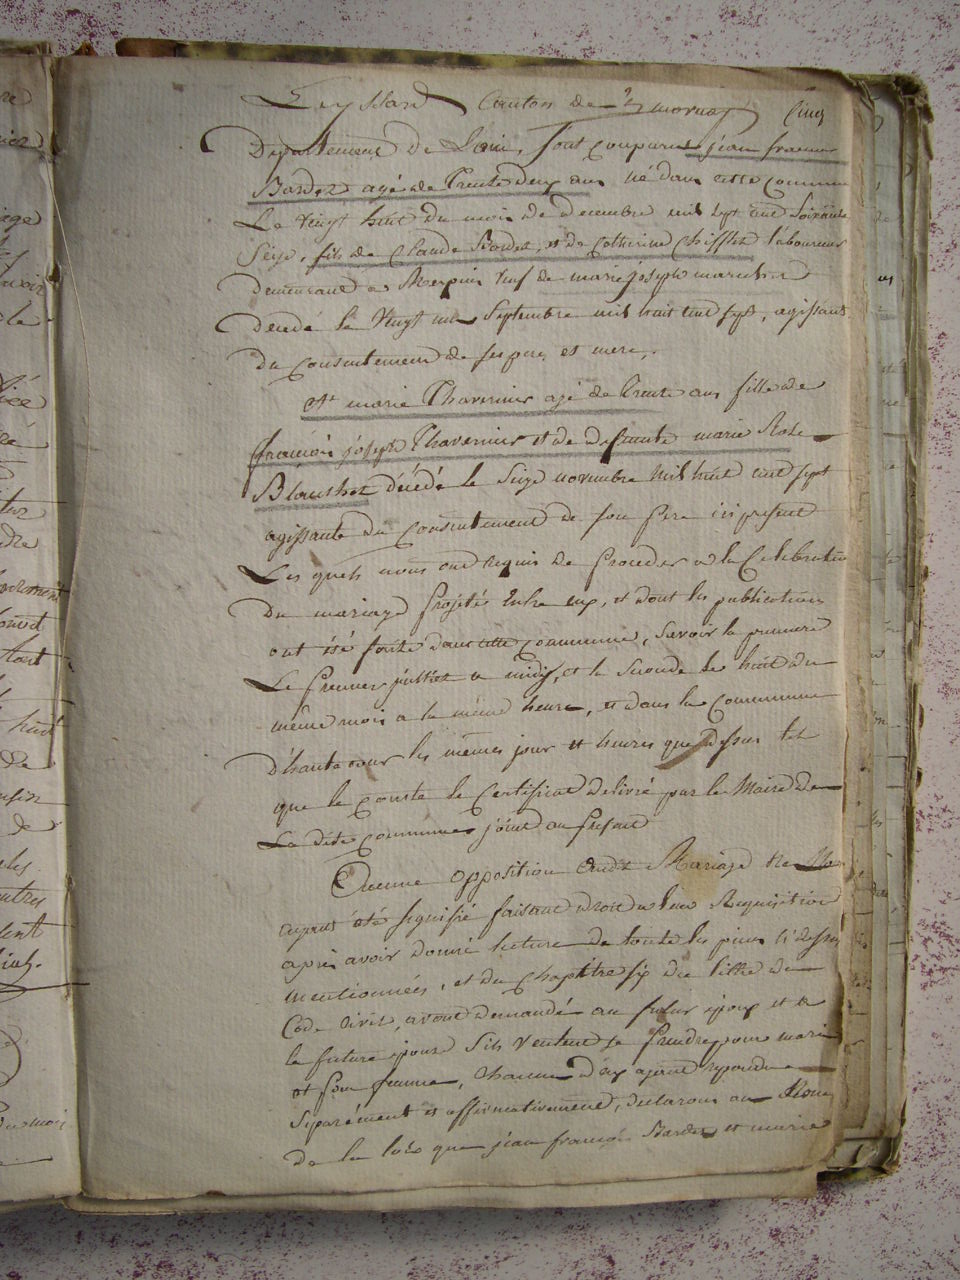 Leyssard Canton de mornay Cinq
Département de L'ain, sont comparus jean francois
Bardet agé de Trente deux ans né dans cette commune
Le vingt huit du mois de decembre mil sept cent soixante
Seize, fils de Claude Bardet, et de Catherine Chifflet laboureur
demeurant a Merpuis veuf de marie joseph
décédé le vingt un Septembre mil huit cent sept, agissant
du consentement de ses pere et mere,.
Et marie Thavernier agé de Trente ans fille de
francois joseph Thavernier et de deffunte marie Rose
Blanchet décédé le Seize novembre mil huit cent sept
agissante du consentement de son pere ici présent
Les quels nous ont requis de Proceder a la Célébration
du mariage projetés Entre eux, et dont les publications
ont été faite dans cette commune, savoir la premiere
Le Premier juillet a midy, et la seconde le huit du
même mois a la même heure, et dans la Commune
d'hautecour les mêmes jour et heures que dessus tel
que le conste le Certificat delivré par le Maire de
La dite commune joint au présent
Aucune opposition audit Mariage ne
ayant été signifié faisant droit a leur Requisition
après avoir donné lecture de toute les pieces ci dessus
mentionnées, et du Chapitre six du titre du
Code Civil, avons demandé au futur epoux et a
la future epouse s'ils veulent se Prendre pour mari
et pour femme, chacun d'eux ayant repondu
Séparément et affirmativement, declarons au Nom
de la loix que jean francois Bardet et marie